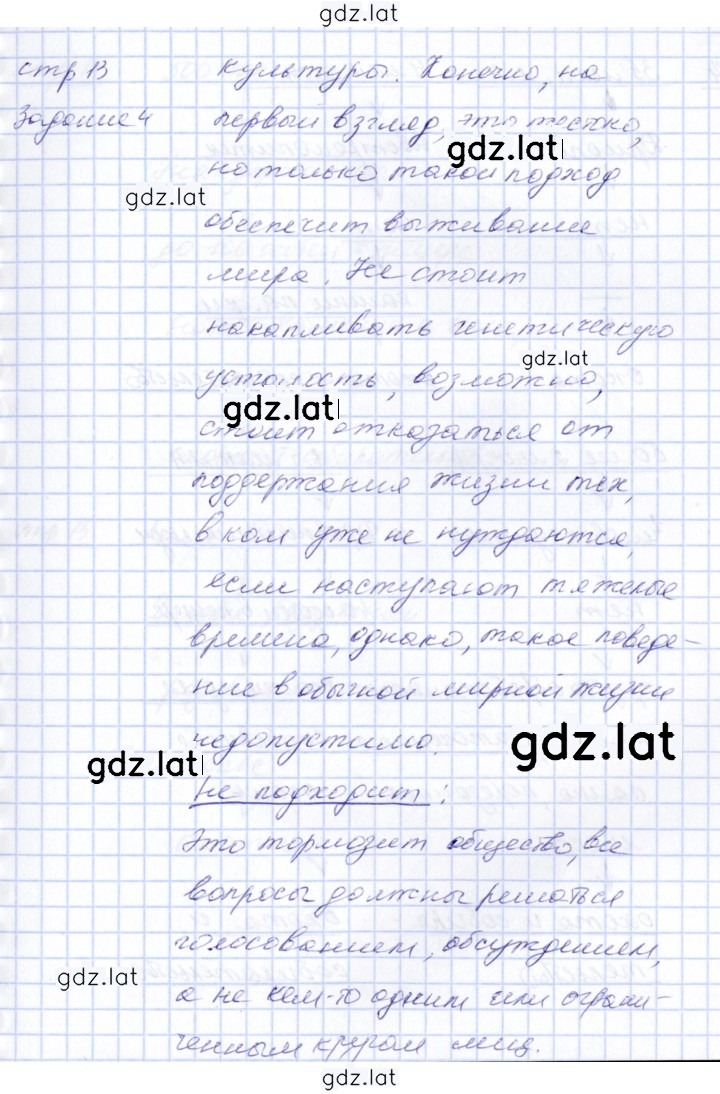 gdz.lat
стр 13
культуры. Конечно, на
Задание 4
первый взгляд, это тяжко,
gdz.lat
но только такой подход
gdz.lat
обеспечит выживание
мира. Не стоит
накапливать генетическую
gdz.lat
усталость, возможно,
gdz.lat
стоит отказаться от
поддержания жизни тех,
в ком уже не нуждаются,
если наступают тяжелые
времена, однако, такое поведе-
ние в обычной мирной жизни
недопустимо.
gdz.lat
gdz.lat
Не подходит:
Это тормозит общество, все
вопросы должны решаться
голосованием, обсуждением,
gdz.lat
а не кем-то одним или ограни-
ченным кругом лиц.
gdz.lat